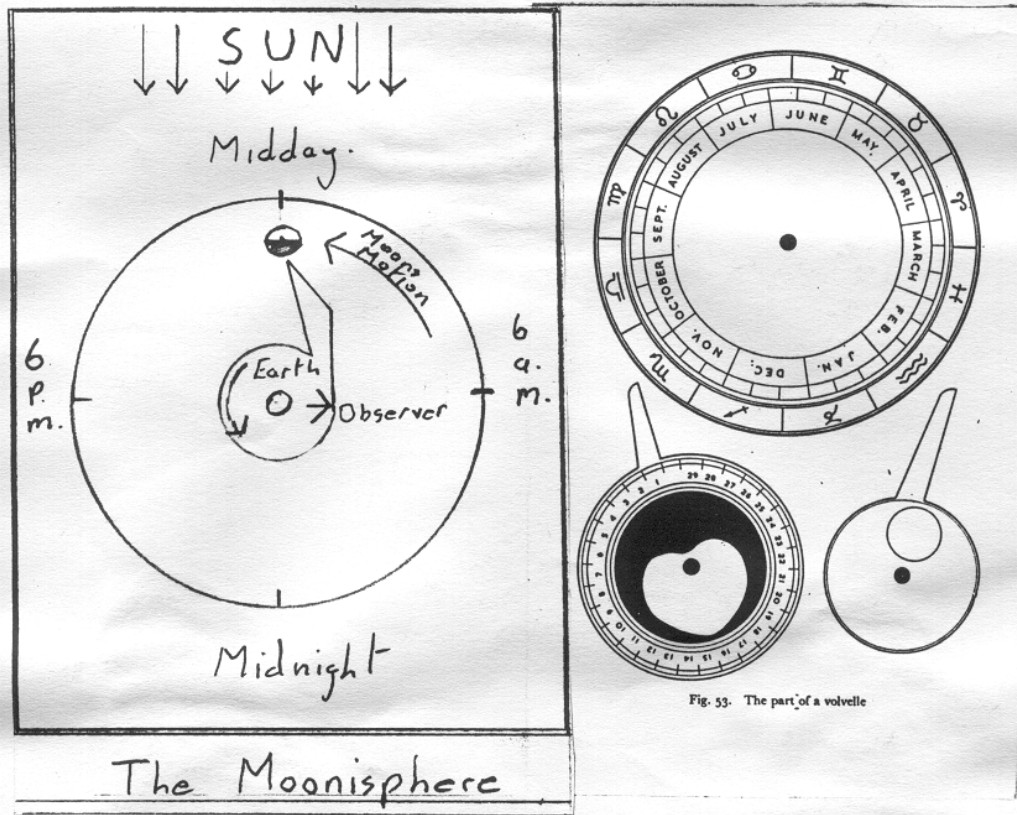 SUN
Midday.
Moons
Motion
6
P.
m.
6
a.
m.
Earth
Observer
Midnight
The Moonisphere
♋ ♊ ♉ ♈ ♓ ♒ ♑ ♐ ♏ ♎ ♍ ♌
JULY JUNE MAY. APRIL MARCH FEB. JAN. DEC. NOV. OCTOBER SEPT. AUGUST
1 2 3 4 5 6 7 8 9 10 11 12 13 14 15 16 17 18 19 20 21 22 23 24 25 26 27 28 29
Fig. 53. The part of a volvelle